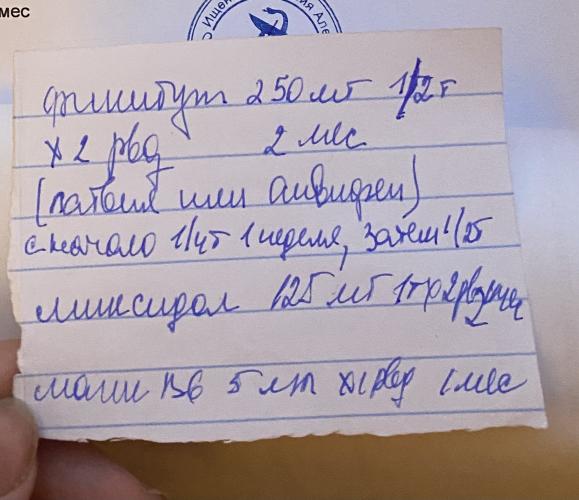 мес
Ищен
Але
фенибут 250 мг 1/2т
х2 рвд 2 мес
(латвия или анвифен)
сначало 1/4т 1 неделя, затем 1/2т
мексидол 125 мг 1т х 2рвд 1 мес
магне В6 5 мл х 1 рвд 1 мес